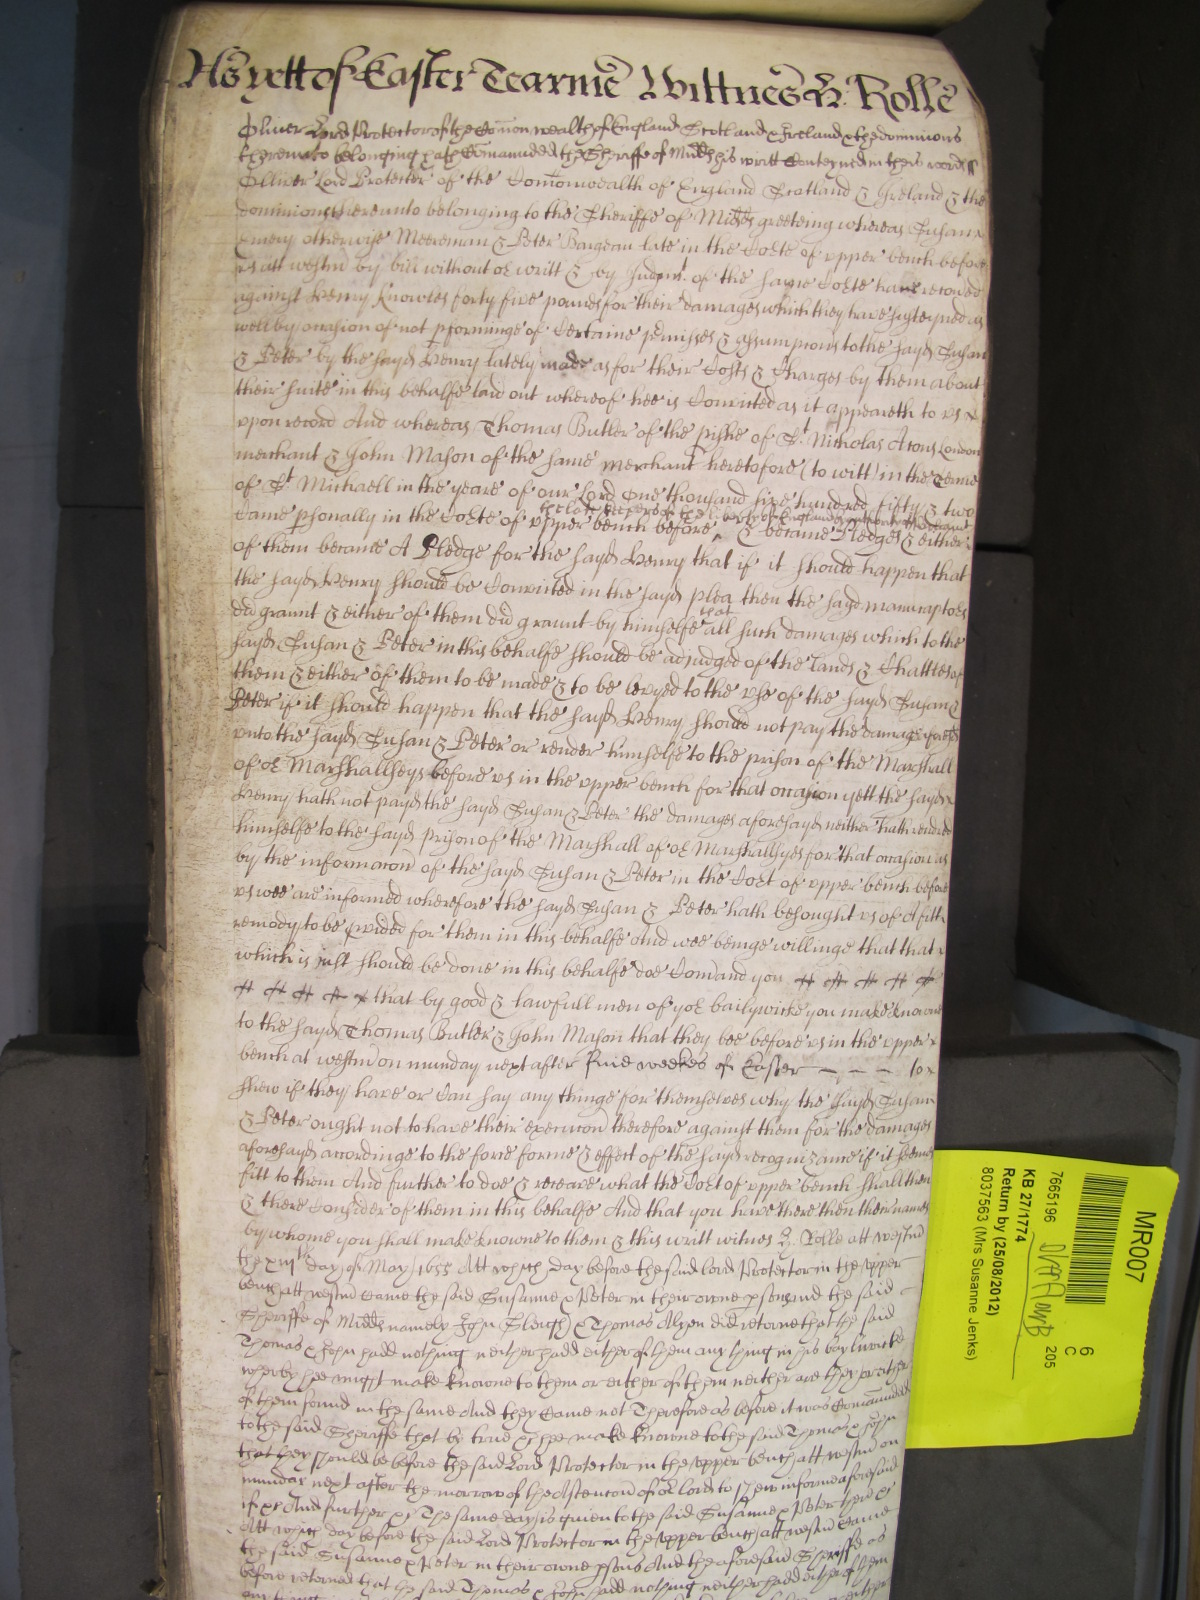 As yett of Easter Tearme Wittnes H: Rolle
Oliver Lord Protector of the Comon wealth of England Scotland & Ireland & the dominions
thereunto belonging hath Comaunded the Sheriffe of Midds his writt Conteyned in theis words ss
Olliver Lord Protector of the Comonwealth of England Scotland & Ireland & the
dominions thereunto belonging to the Sheriffe of Midds greeteing whereas Susan
Emery otherwise Meereman & Peter Bargeau late in the Co:te of upper bench before
us att westm by bill without or writt & by Judgmt. of the same Co:te have recoved
against Henry Knowles forty five pounds for their damages which they have susteyned as
well by occasion of not pforminge of Certaine pmisses & assumpcons to the sayd Susan
& Peter by the sayd Henry lately made as for their Costs & Charges by them about
their suite in this behalfe laid out whereof hee is Convicted as it appeareth to us
upon record And whereas Thomas Butler of the pishe of St. Nicholas Acons London
merchant & John Mason of the same merchant heretofore (to witt) in the Terme
of St Michaell in the yeare of our Lord One thousand sixe hundred fifty & two
the late keepers of the liberty of England by authority
Came psonally in the Co:te of upper bench before ^ & became Pledges & either
of them became A Pledge for the sayd Henry that if it should happen that
the sayd Henry should be Convicted in the sayd plea then the sayd manucaptors
did graunt & either of them did graunt by himselfe that all such damages which to the
sayd Susan & Peter in this behalfe should be adjudged of the lands & Chattles of
them & either of them to be made & to be levyed to the use of the sayd Susan &
Peter if it should happen that the sayd Henry should not pay the damages
unto the sayd Susan & Peter or render himselfe to the prison of the Marshall
of or Marshallseys before us in the upper bench for that occasion yett the sayd
Henry hath not payd the sayd Susan & Peter the damages aforesayd neither hath rendred
himselfe to the sayd prison of the Marshall of or Marshallsyes for that occasion as
by the informacon of the sayd Susan & Peter in the Co:t of upper bench before
us wee are informed wherefore the sayd Susan & Peter hath besought us of A fitt
remedy to be pvided for them in this behalfe And wee beinge willinge that that
which is just should be done in this behalfe doe Comand you # # # # #
# # # # that by good & lawfull men of yor bailywicke you make knowne
to the sayd Thomas Butler & John Mason that they bee before us in the upper
bench at westm on munday next after five weekes of Easter – – – – to
shew if they have or Can say any thinge for themselves why the sayd Susan
& Peter ought not to have their execucon therefore against them for the damages
aforesayd accordinge to the force forme & effect of the sayd recognizance if it seeme
fitt to them And further to doe & receave what the Co:t of upper bench shall then
& there Consider of them in this behalfe And that you have there then their names
by whome you shall make knowne to them & this writt witnes H. Rolle att westm
day of May 1655 Att which day before the said lord Protector in the upper
bench att westm Came the said Susanne & Peter in their owne psons And the said
Sheriffe of Midds namely John & Thomas did retorne that the said
Thomas & John hadd nothing neither hadd either of them any thing in his baylywicke
wherby hee might make knowne to them or either of them neither are they or either
of them found in the same And they Came not Therefore as before it was Comaunded
to the said Sheriffe that by true &c hee make knowne to the said Thomas & John
that they should be before the said Lord Protector in the upper bench att westm on
munday next after the morrow of the Ascencon of or Lord to shew in forme aforesaid
if &c And further &c The same day is given to the said Susanne & Peter there &c
Att which day before the said Lord Protector in the upper bench att westm Came
the said Susanne & Peter in their owne psons And the aforesaid Sheriffe as
before retorned that the said Thomas & John hadd nothing neither hadd either of them
MR007
6
C
205
7665196
KB 27/1774
Return by (25/08/2012)
8037563 (Mrs Susanne Jenks)